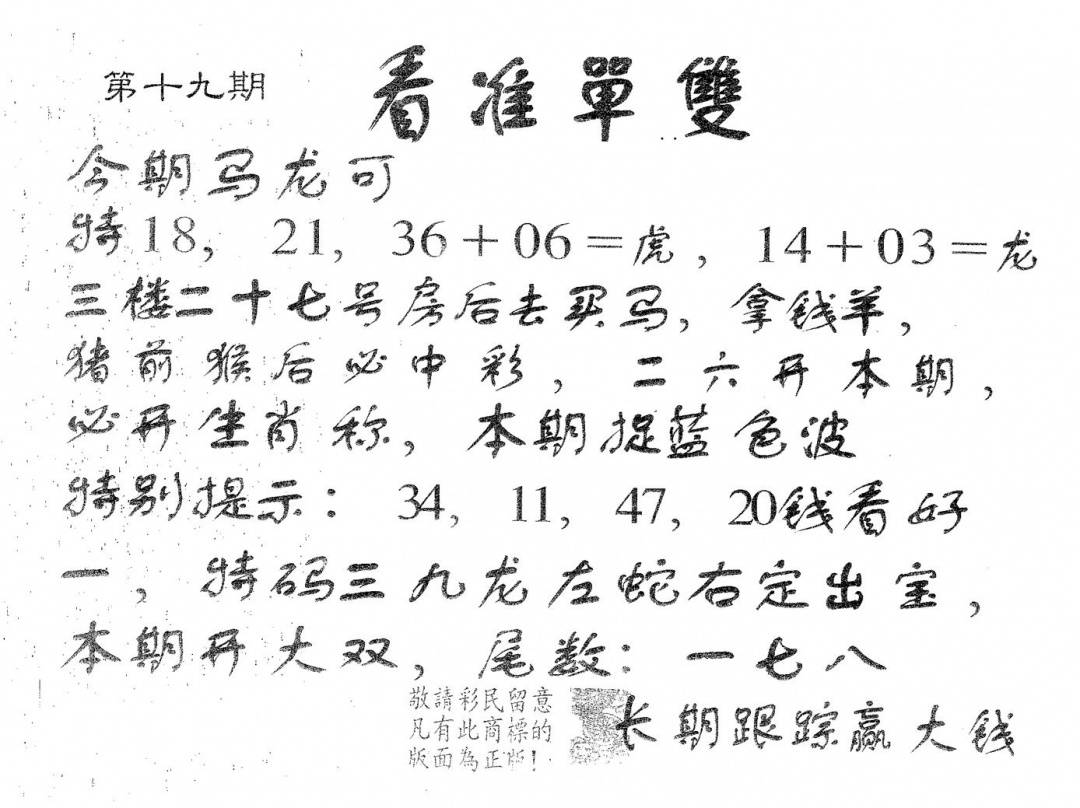 第十九期
看准單雙
今期马龙可
特18, 21, 36+06=虎, 14+03=龙
三楼二十七号房后去买马, 拿钱羊,
猪前猴后必中彩, 二六开本期,
必开生肖称, 本期捉蓝色波
特别提示: 34, 11, 47, 20钱看好
一, 特码三九龙左蛇右定出宝,
本期开大双, 尾数: 一七八
敬請彩民留意
凡有此商標的
版面為正版!
长期跟踪赢大钱